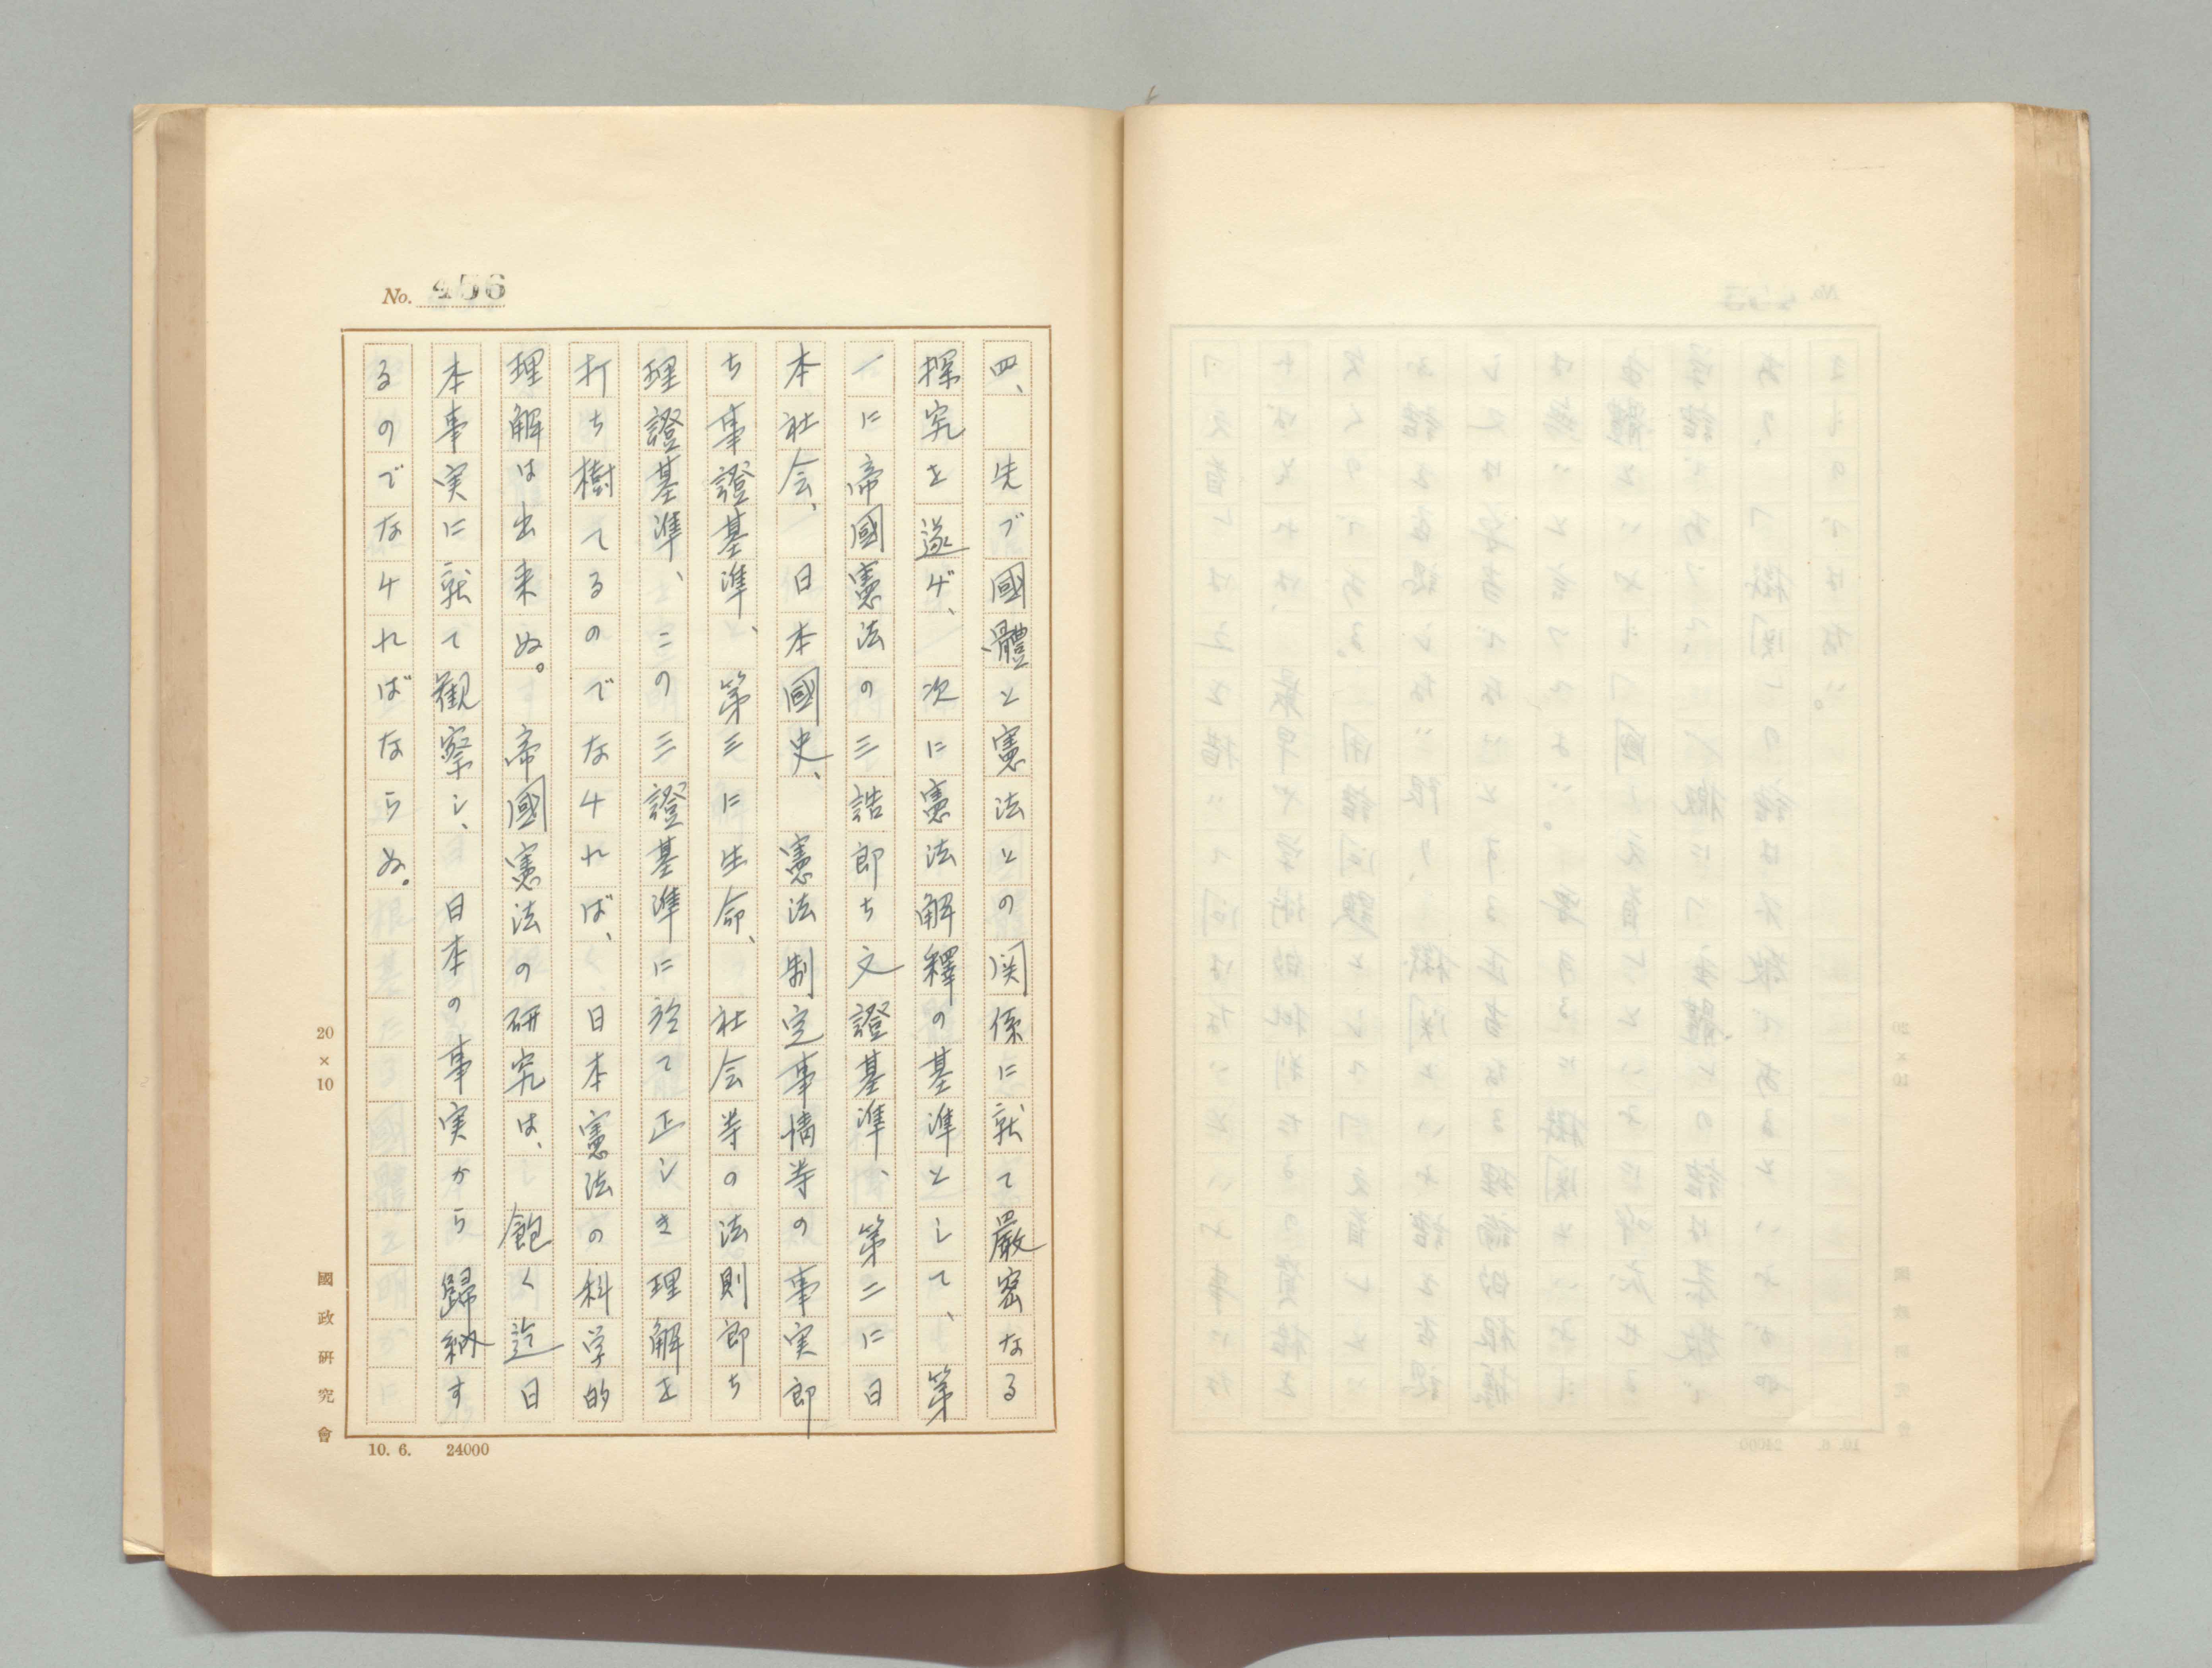 No. 456
四、　先づ國體と憲法との関係に就て嚴密なる
探究を遂げ、　次に憲法解釋の基準として、　第
一に帝國憲法の三誥即ち文證基準、　第二に日
本社会、　日本國史、　憲法制定事情等の事実即
ち事證基準、　第三に生命、　社会等の法則即ち
理證基準、　この三證基準に於て正しき理解を
打ち樹てるのでなければ、　日本憲法の科学的
理解は出来ぬ。　帝國憲法の研究は、　飽く迄日
本事実に就て観察し、　日本の事実から歸納す
るのでなければならぬ。
20×10
國政研究會
10. 6.　24000